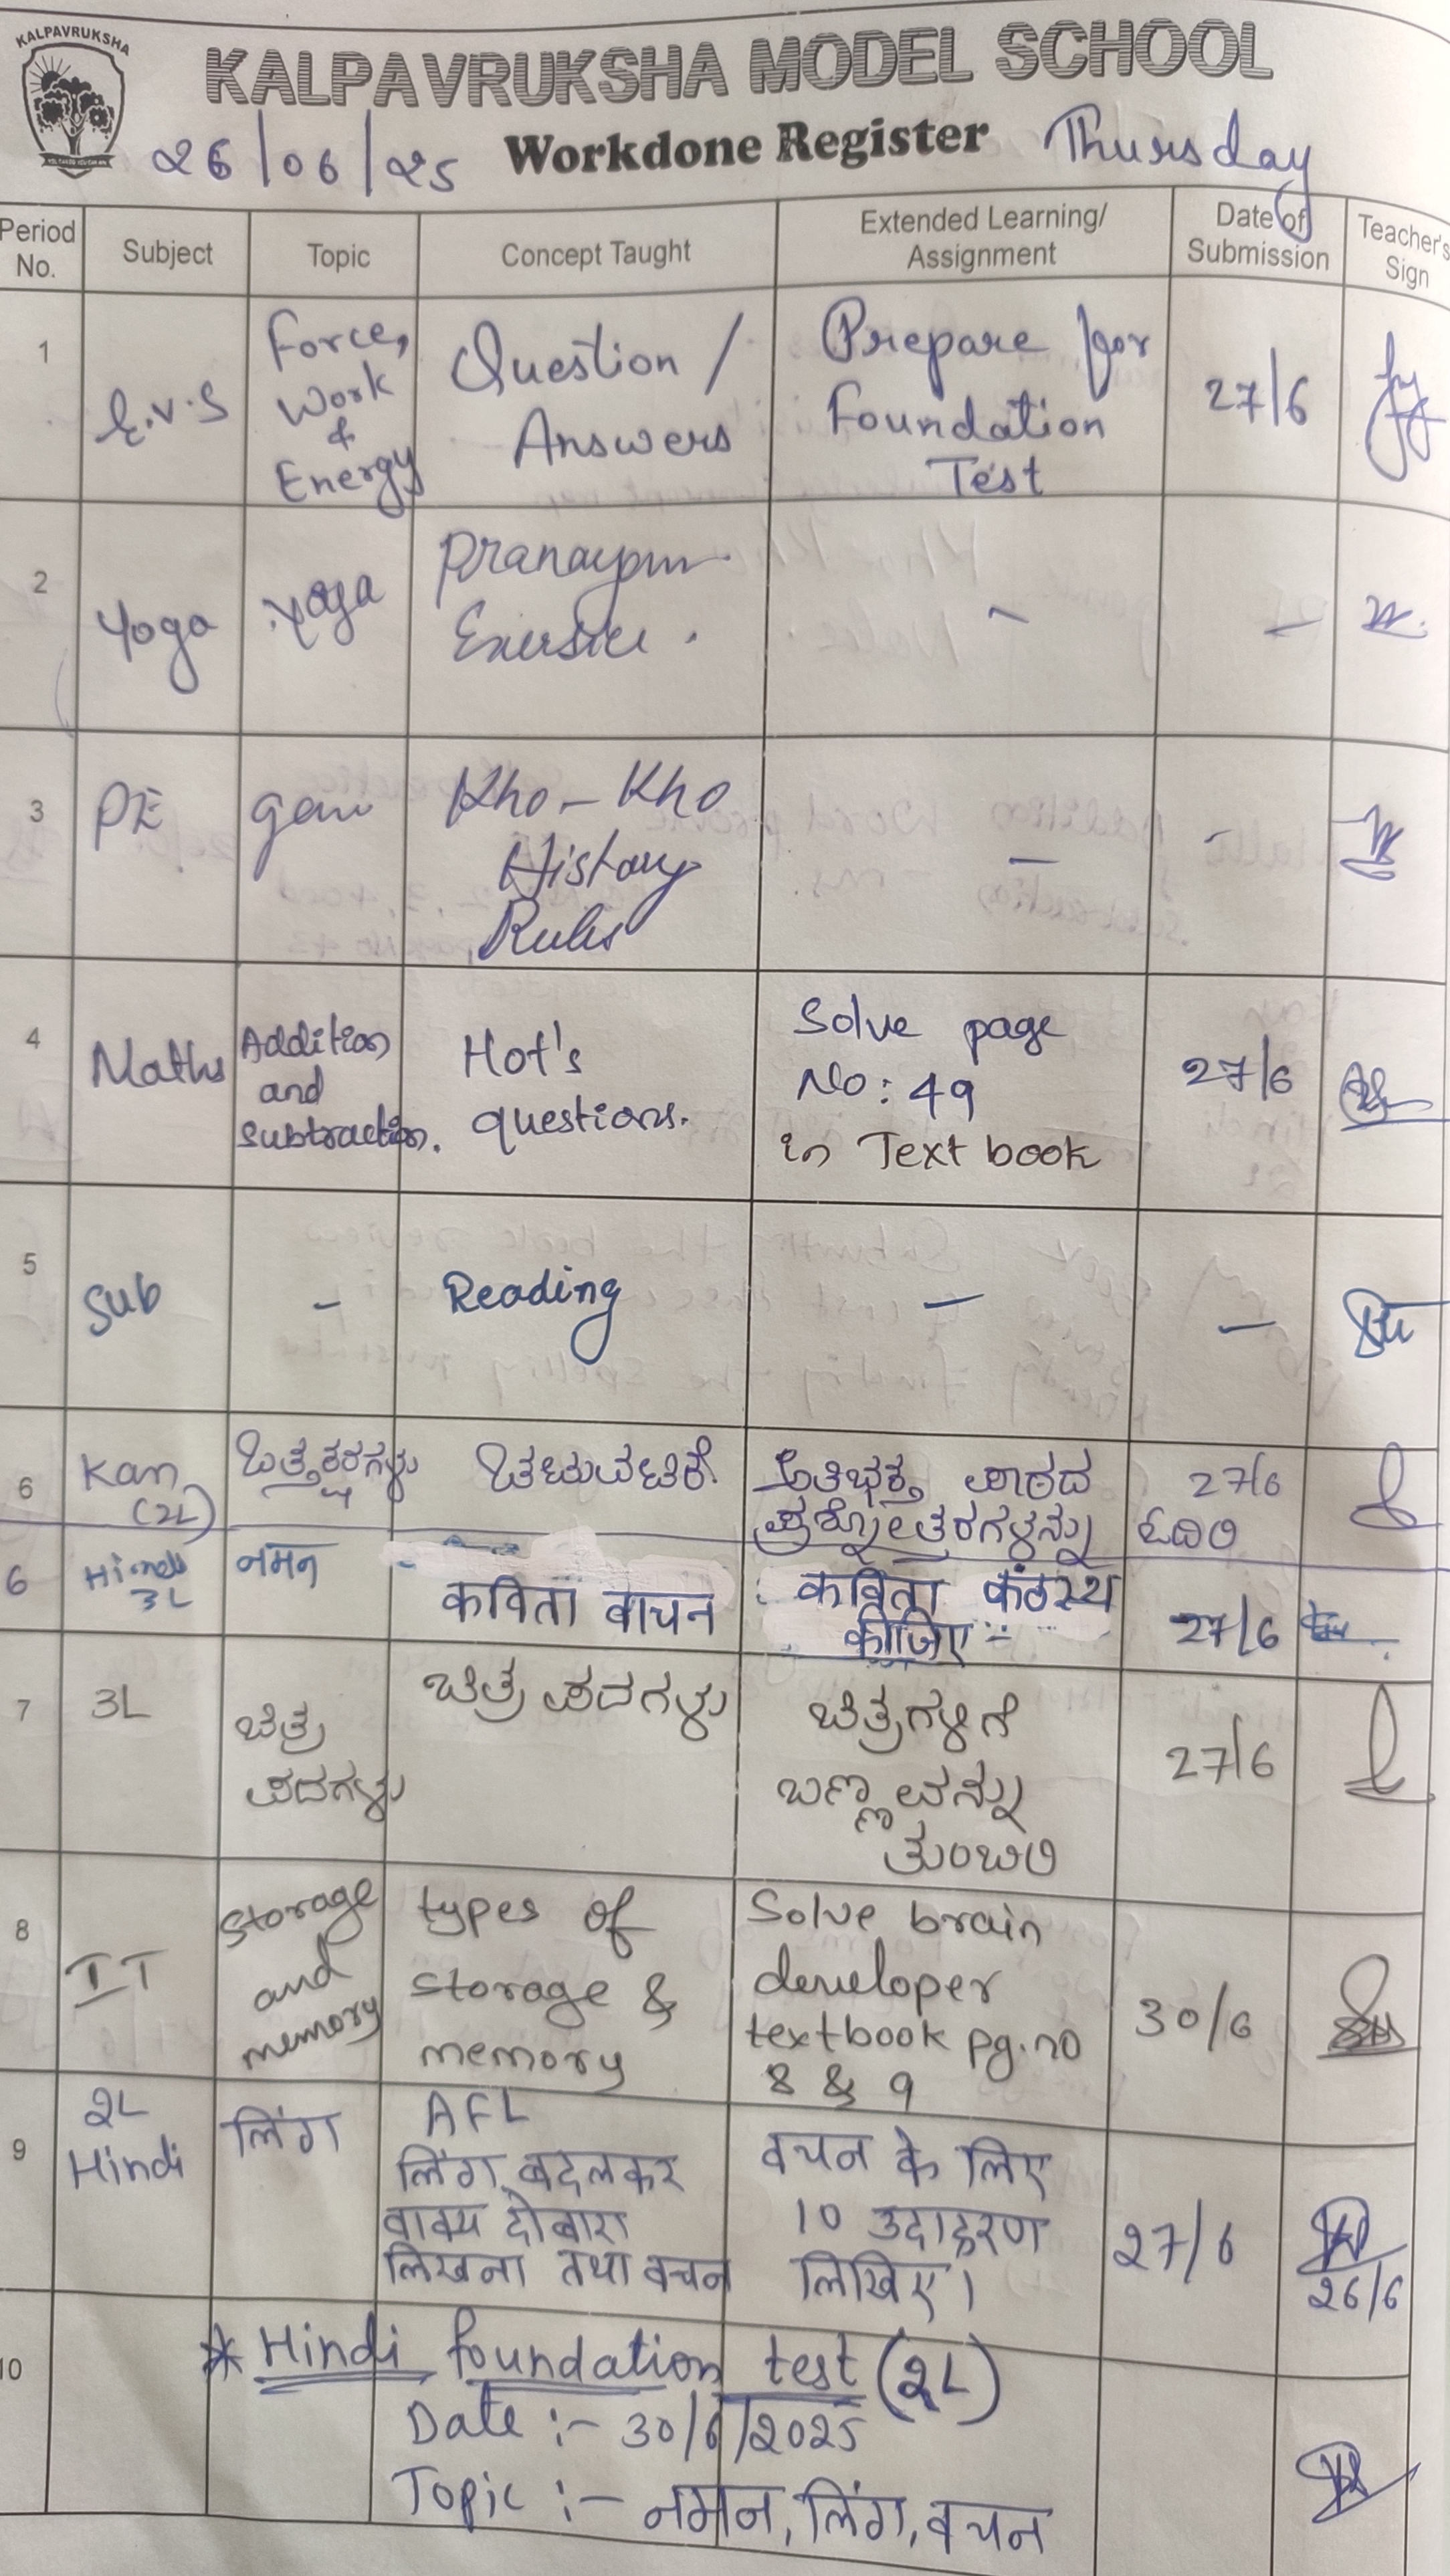 KALPAVRUKSHA
KALPAVRUKSHA MODEL SCHOOL
26/06/25 Workdone Register Thursday
Period No. Subject Topic Concept Taught Extended Learning/ Assignment Date of Submission Teacher's Sign
1 E.V.S Force, Work & Energy Question / Answers Prepare for Foundation Test 27/6
2 Yoga Yoga Pranayam -  -
3 PE Kho-Kho History Rules - -
4 Maths Addition and Subtraction. Hot's questions. Solve page No: 49 in Text book 27/6
5 Sub - Reading - -
6 Kan (2L) ಪಾಠದ ಪ್ರಶ್ನೋತ್ತರಗಳನ್ನು ಓದಿರಿ 27/6
6 Hindi 3L नमन कविता वाचन कविता कंठस्थ कीजिए 27/6
7 3L ಚಿತ್ರ ಪದಗಳು ಚಿತ್ರ ಪದಗಳು ಚಿತ್ರಗಳಿಗೆ ಬಣ್ಣವನ್ನು ತುಂಬಿರಿ 27/6
8 IT Storage and memory types of storage & memory Solve brain developer textbook pg.no 8 & 9 30/6
9 2L Hindi लिंग AFL लिंग बदलकर वाक्य दोबारा लिखना तथा वचन वचन के लिए 10 उदाहरण लिखिए। 27/6 26/6
10 * Hindi foundation test (2L)
Date :- 30/6/2025
Topic :- नमन, लिंग, वचन